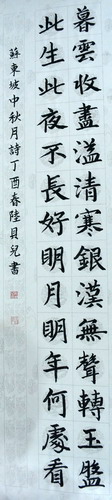 暮雲收盡溢清寒銀漢無聲轉玉盤
此生此夜不長好明月明年何處看
蘇東坡中秋月詩丁酉春陸貝兒書